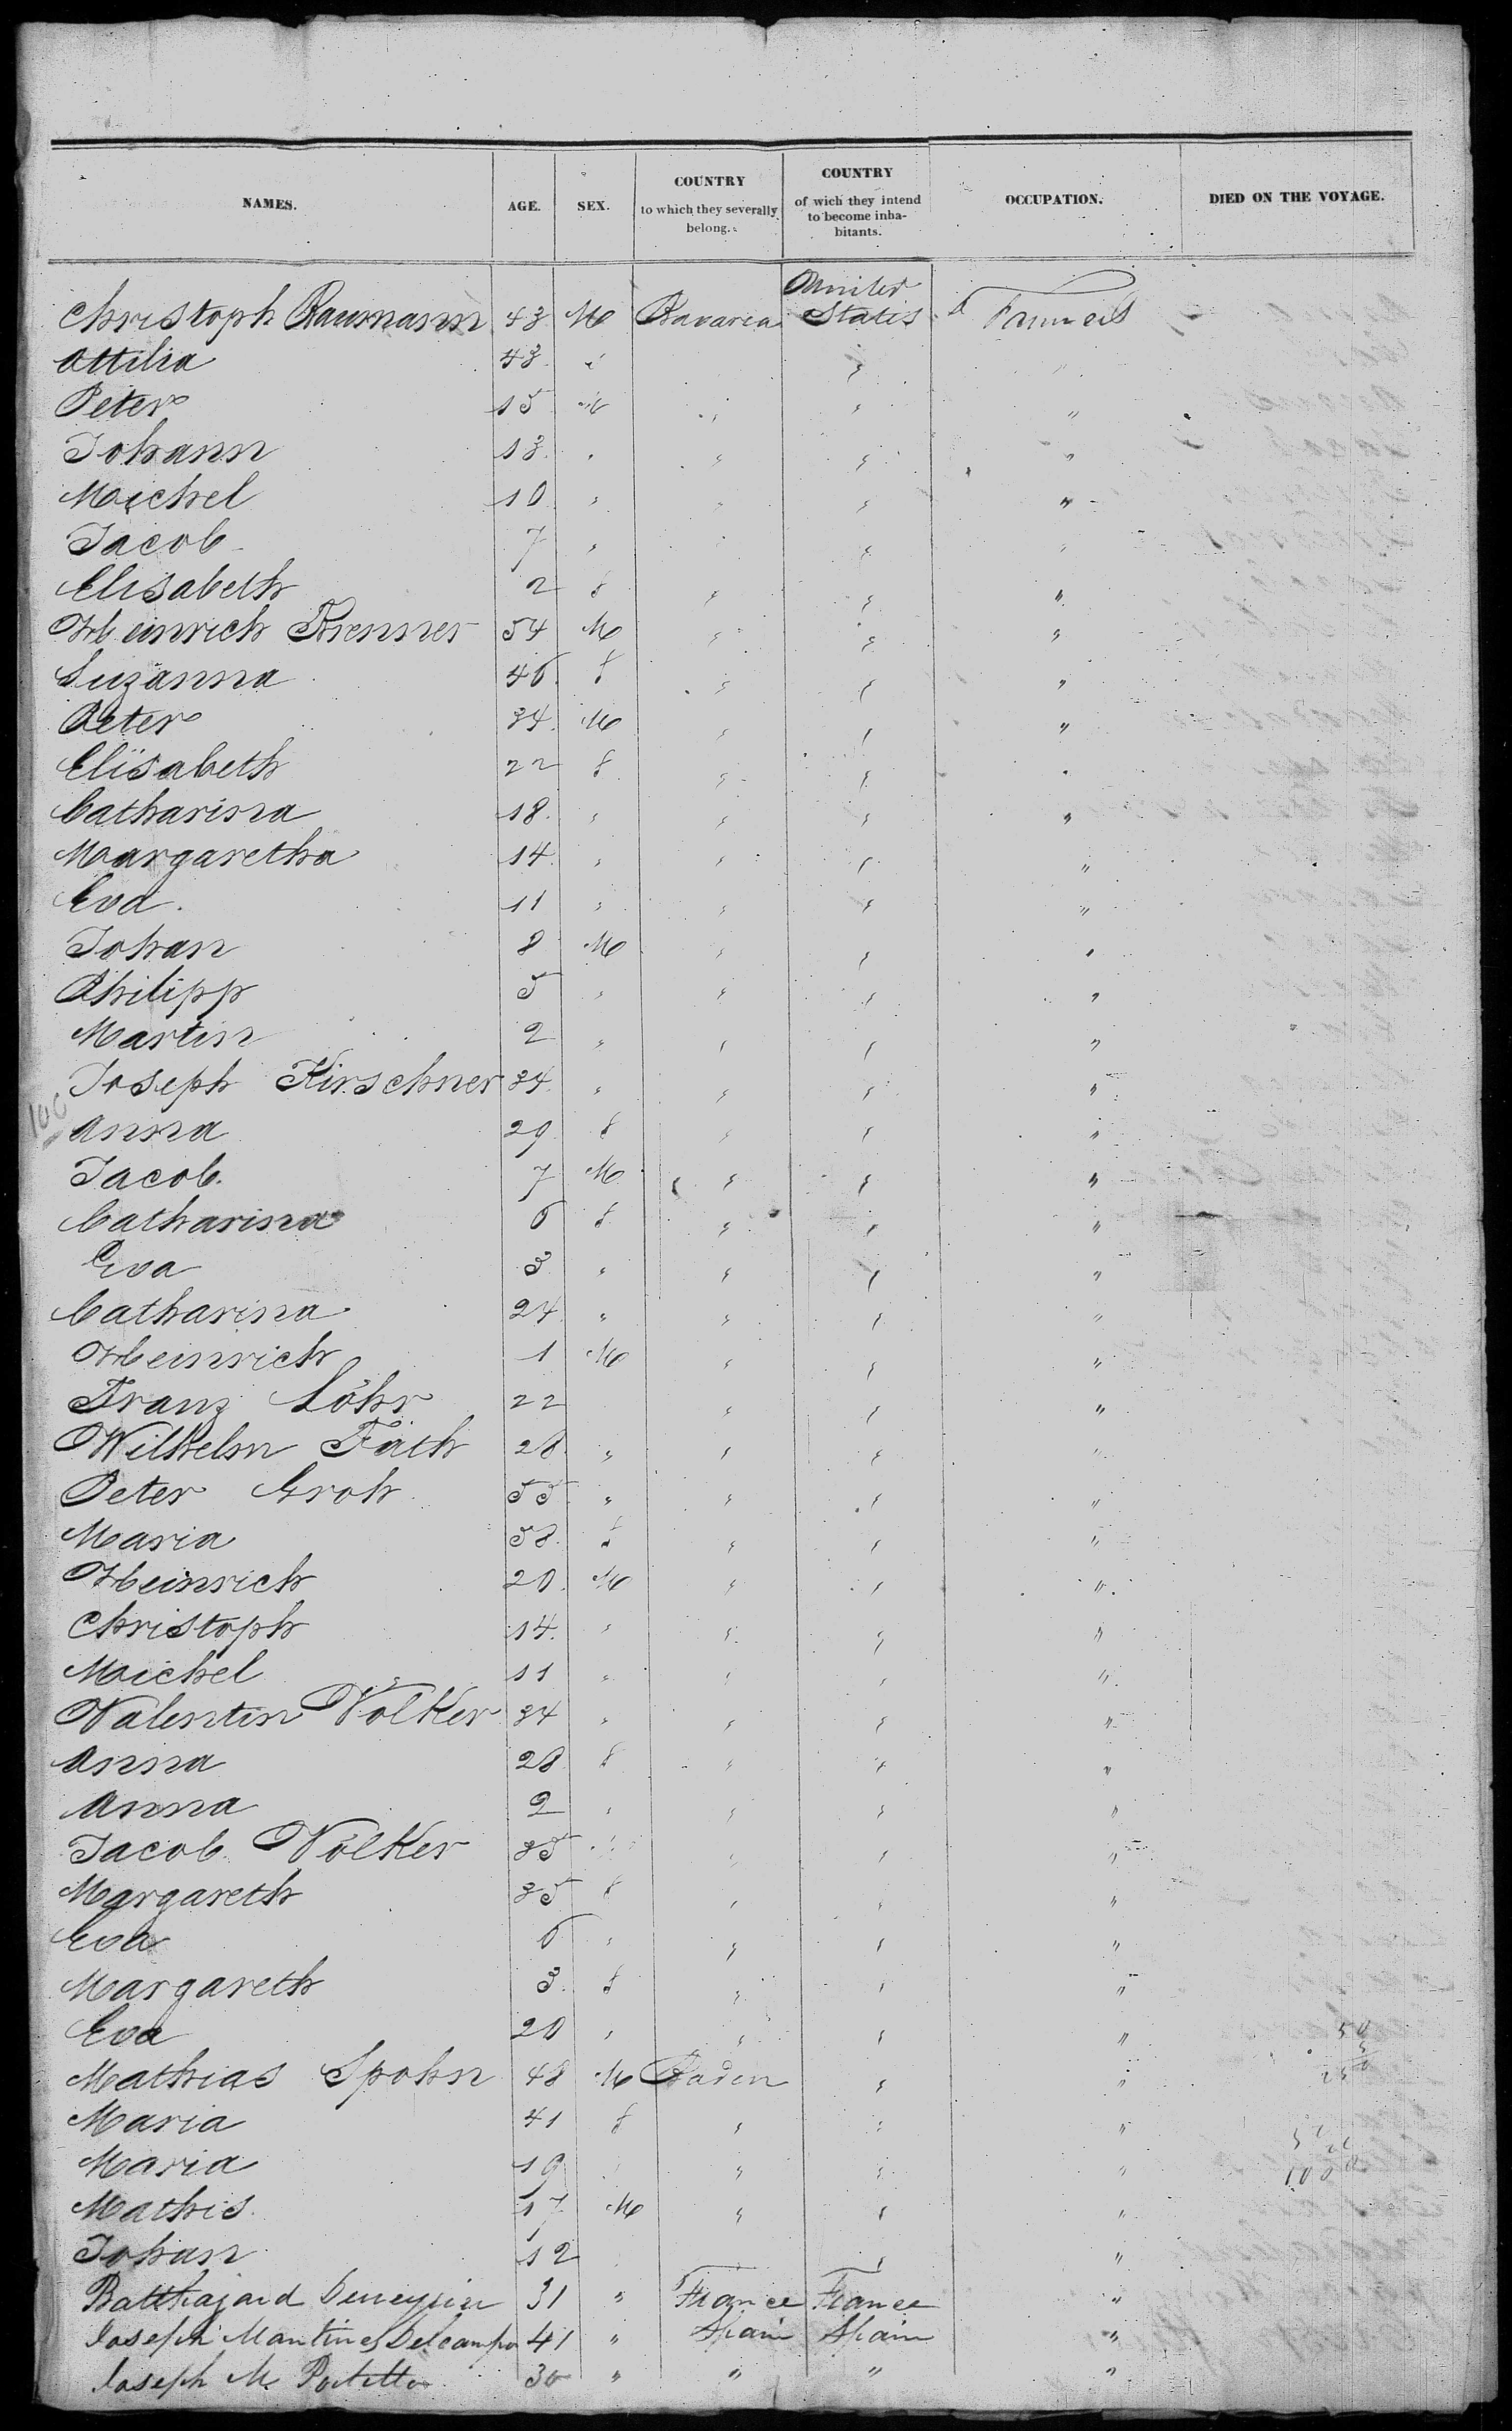 NAMES. AGE. SEX. COUNTRY to which they severally belong. COUNTRY of wich they intend to become inhabitants. OCCUPATION. DIED ON THE VOYAGE.
Christoph Baumann 43 M Bavaria United States Farmers
Attilia 43 " " "
Peter 15 M " " "
Johann 13 " " " "
Michel 10 " " " "
Jacob 7 " " " "
Elisabeth 2 f " " "
Heinrich Brenner 54 M " " "
Suzanna 46 f " " "
Peter 34 M " " "
Elisabeth 22 f " " "
Catharina 18 " " " "
Margaretha 14 " " " "
Eva 11 " " " "
Johan 8 M " " "
Philipp 5 " " " "
Martin 2 " " " "
Joseph Kirschner 34 " " " "
100
Anna 29 f " " "
Jacob 7 M " " "
Catharina 6 f " " "
Eva 3 " " " "
Catharina 24 " " " "
Heinrich 1 M " " "
Franz Löhr 22 " " "
Wilhelm Fäth 28 " " " "
Peter Groh 55 " " " "
Maria 58 f " " "
Heinrich 20 M " " "
Christoph 14 " " " "
Michel 11 " " " "
Valentin Volker 34 " " " "
Anna 28 f " " "
Anna 2 " " " "
Jacob Völker 35 " " " "
Margareth 35 f " " "
Eva 6 " " " "
Margareth 3 f " " "
Eva 20 " " " "
Mathias Spohn 48 M Baden " "
Maria 41 f " " "
Maria 19 " " " "
Mathis 17 M " " "
Johan 12 " "
31 " France France "
Joseph Martines Delcampo 41 " Spain Spain "
Joseph M. 30 " " " "